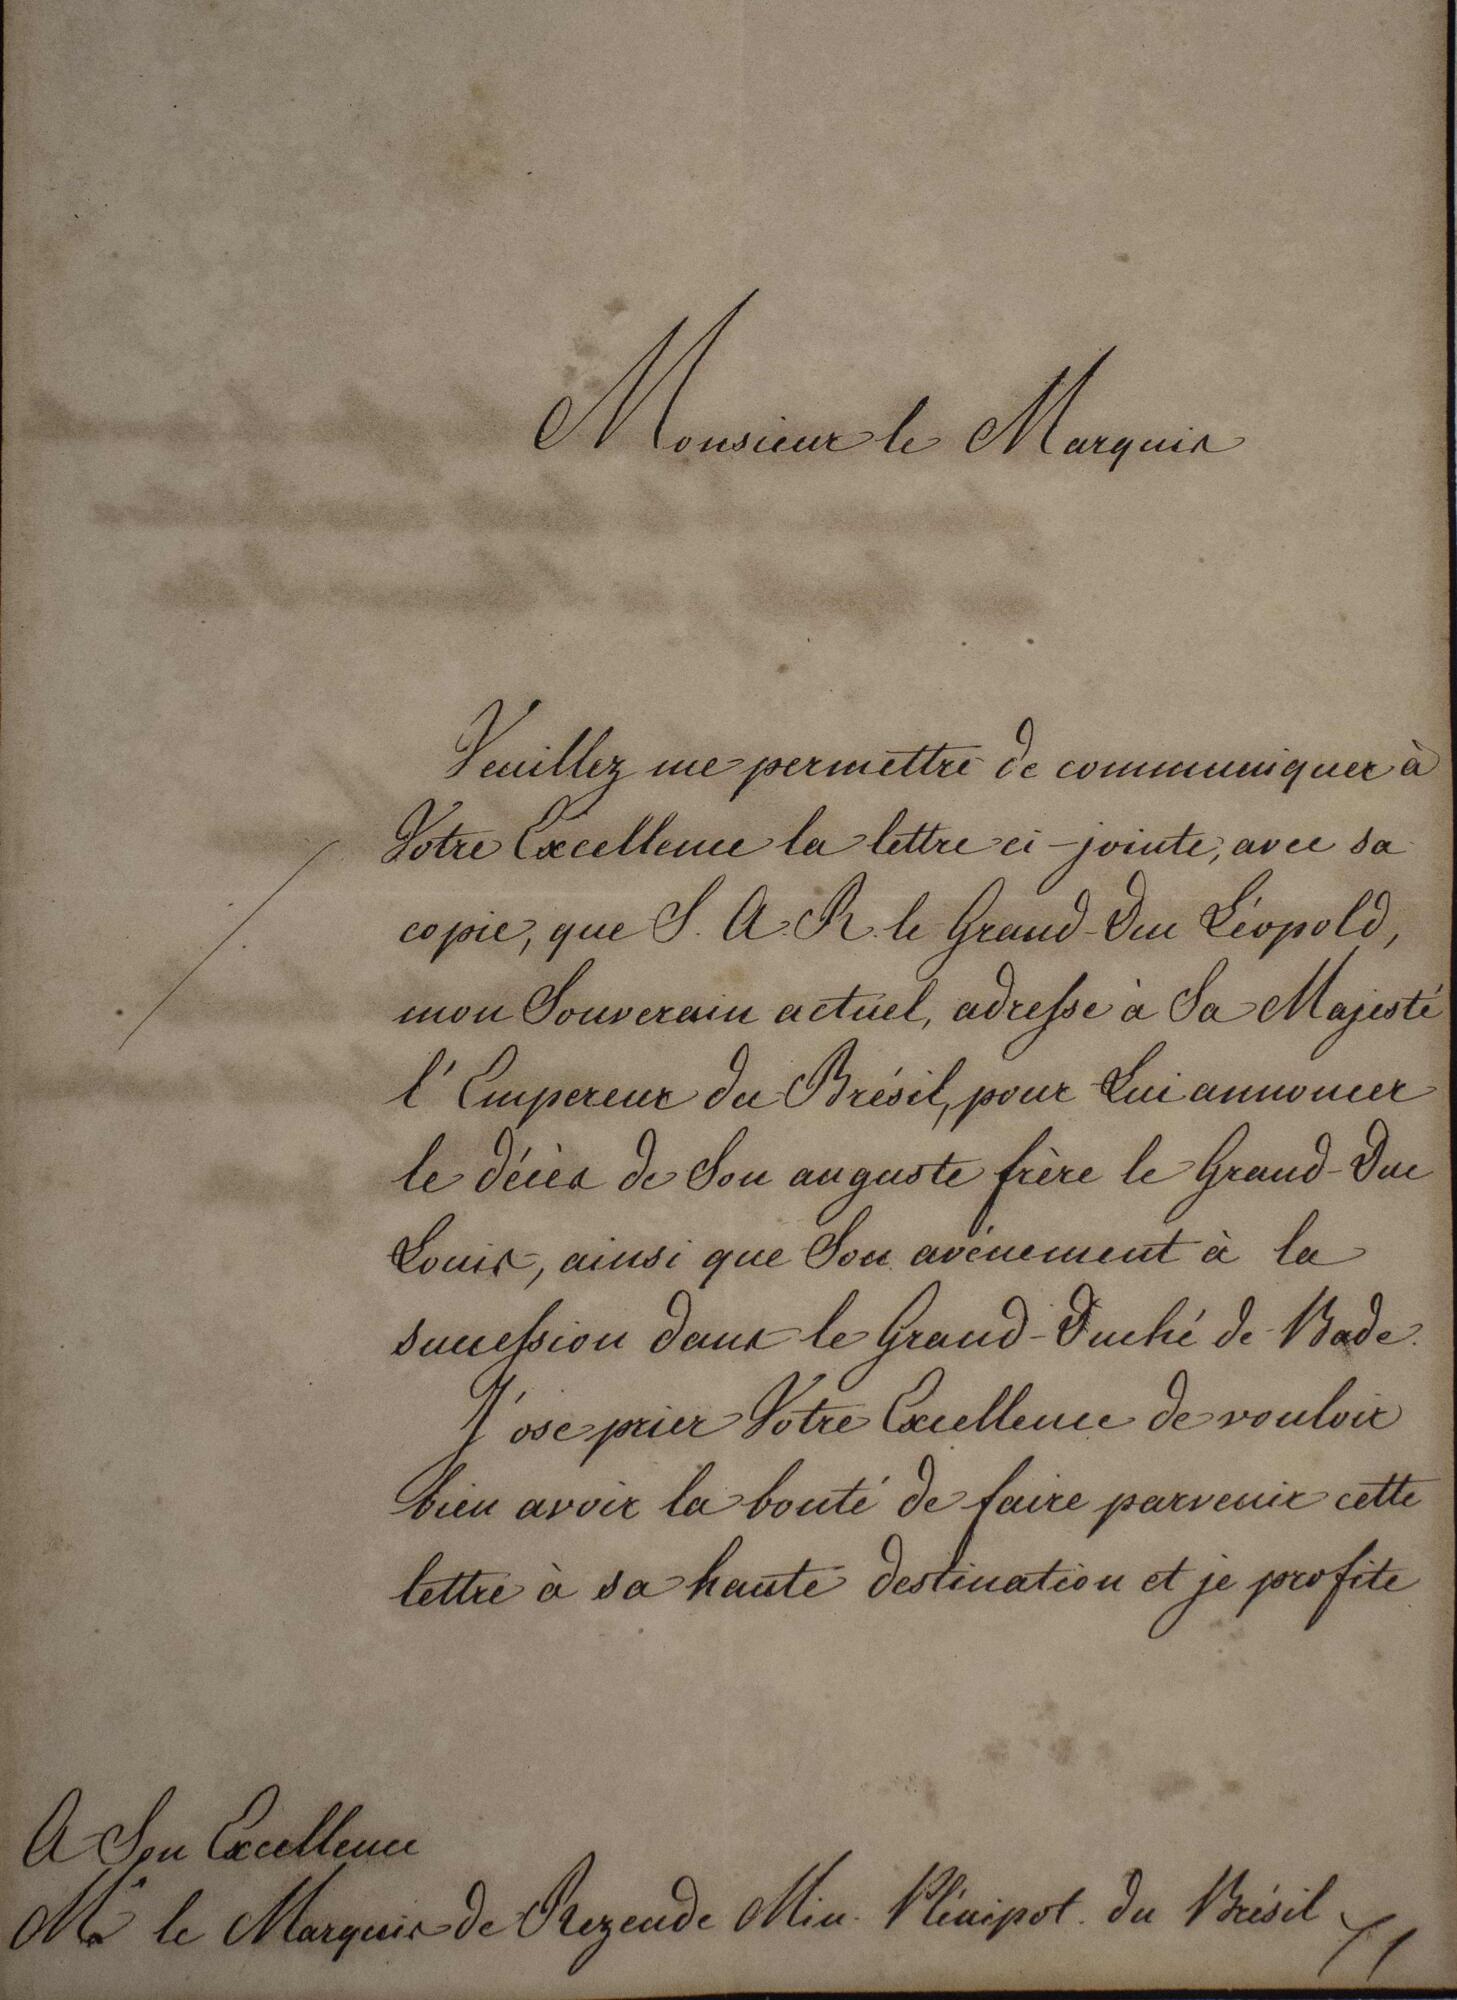 Monsieur le Marquis
Veuillez me permettre de communiquer à
Votre Excellence la lettre ci-jointe, avec sa
copie, que S. A. R. le Grand-Duc Léopold,
mon Souverain actuel, adresse à Sa Majesté
l'Empereur du Brésil, pour Lui annoncer
le décès de Son auguste frère le Grand-Duc
Louis, ainsi que Son avénement à la
succession dans le Grand-Duché de Bade.
J'ose prier Votre Excellence de vouloir
bien avoir la bonté de faire parvenir cette
lettre à sa haute destination et je profite
A Son Excellence
Mr le Marquis de Rezende Min. Plénipot. du Brésil